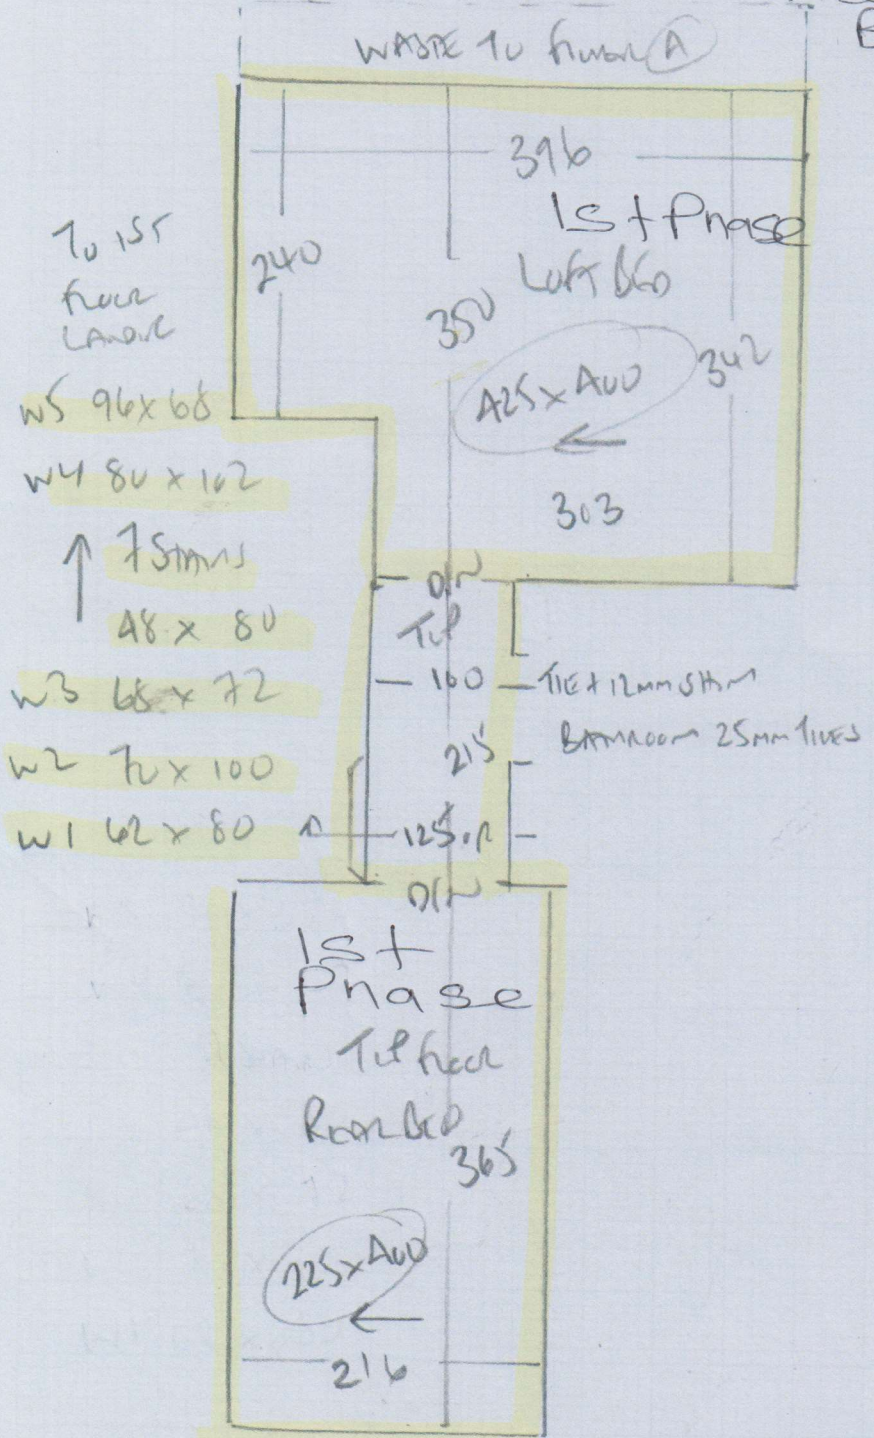 B
WASTE TO
A
396
1st Phase
LOFT BED
240
350
342
A25 x A00
303
TO 1ST
FLOOR
W5 96 x 68
W4 80 x 102
7 STAIRS
48 x 80
W3 68 x 72
W2 72 x 100
W1 62 x 80
D/W
TOP
100
215
BATHROOM 25MM TILES
125
D/W
1st
Phase
TOP FLOOR
REAR BED
365
225 x A00
216